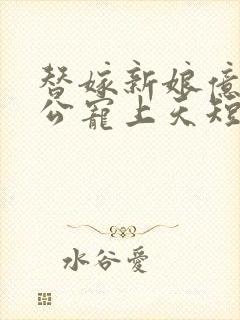 替嫁新娘億
公寵上天短
水谷愛